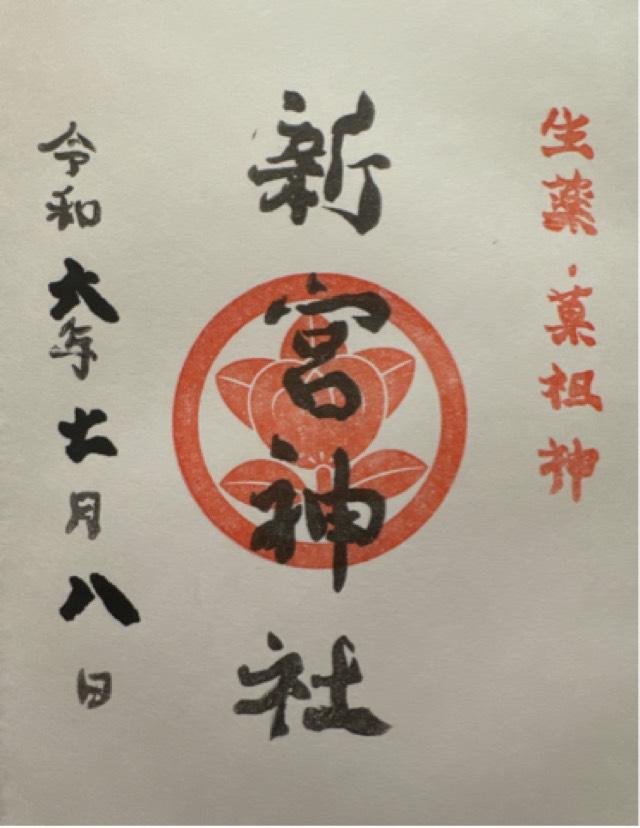 生薬・菓祖神
新宮神社
令和六年七月八日